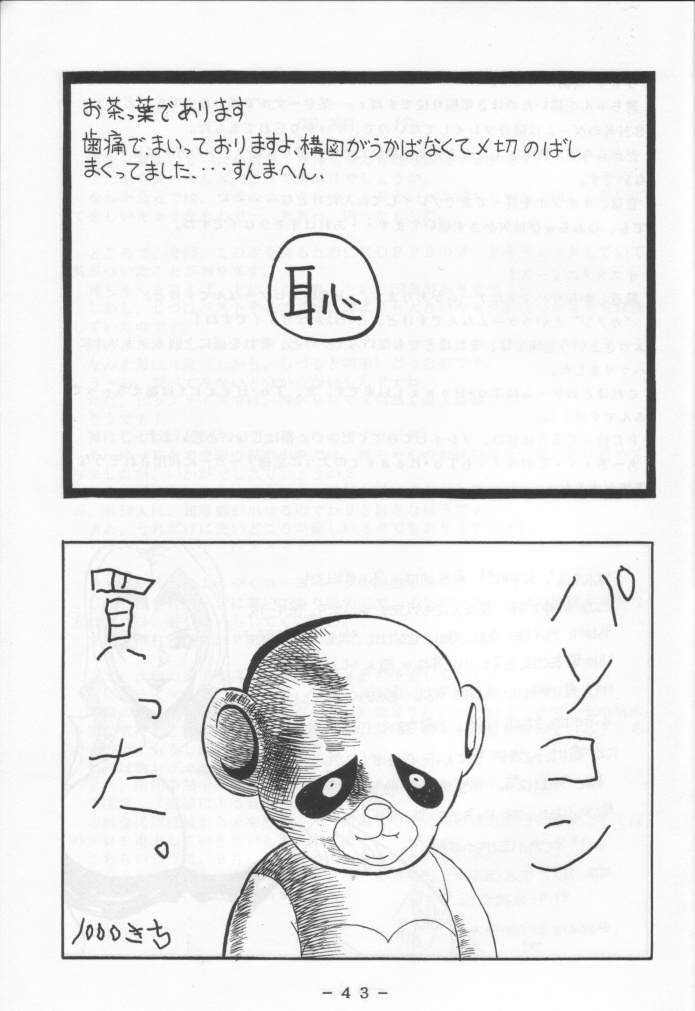 お茶っ葉であります
歯痛で、まいっておりますよ、構図がうかばなくて〆切のばし
まくってました・・・・すんまへん.
恥
パソコン
買った。
1000きち
－43－